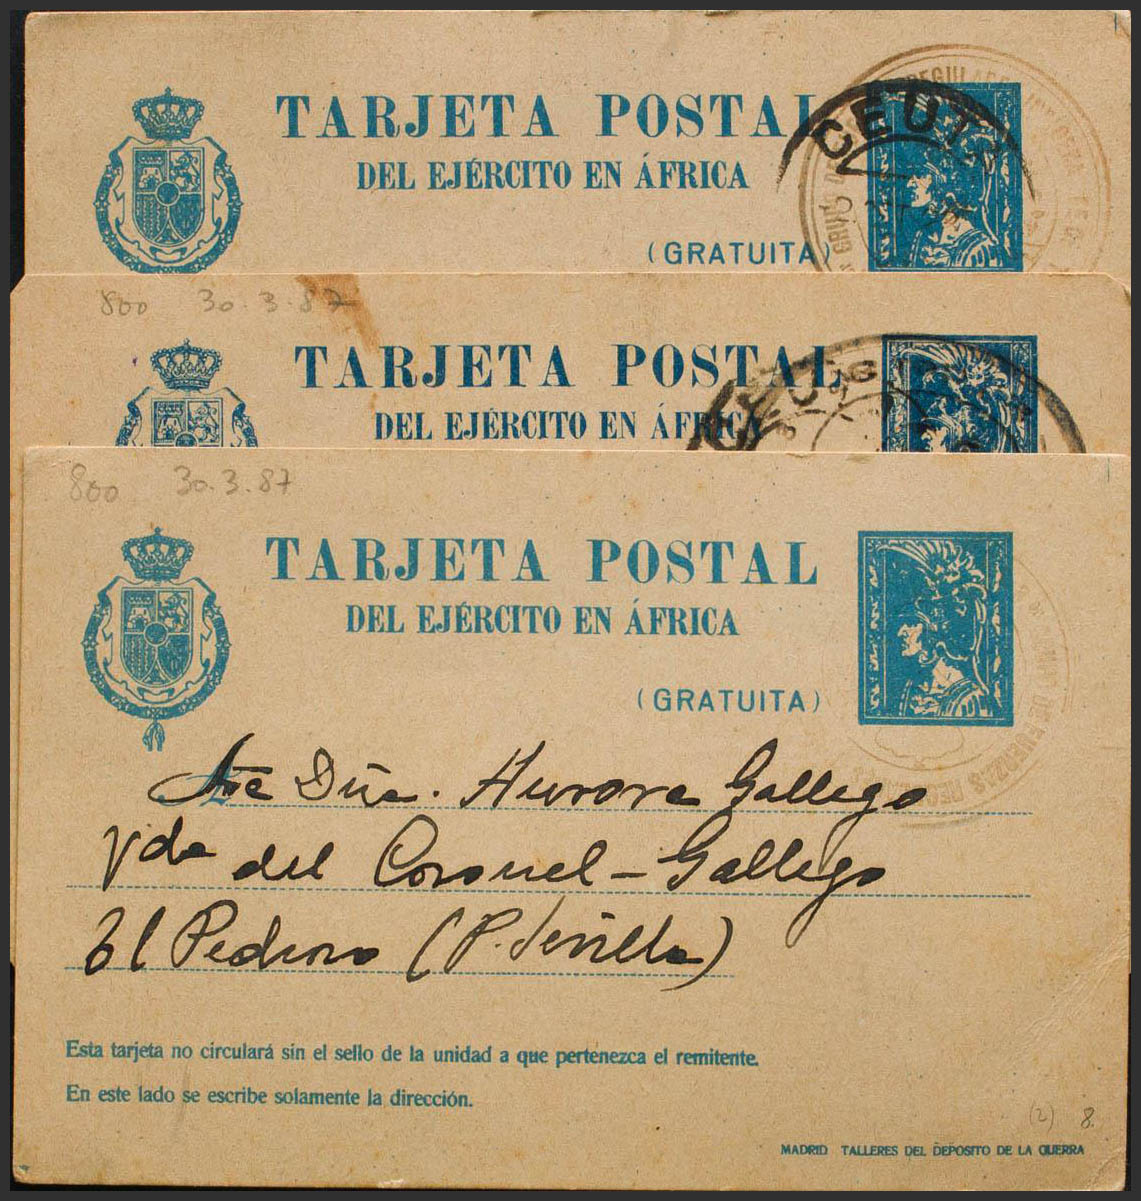 TARJETA POSTAL
DEL EJÉRCITO EN ÁFRICA
(GRATUITA)
CEUTA
800 30.3.87
TARJETA POSTAL
DEL EJÉRCITO EN ÁFRICA
800 30.3.87
TARJETA POSTAL
DEL EJÉRCITO EN ÁFRICA
(GRATUITA)
DE FUERZAS REGULARES
Dña. Aurora Gallego
Vda del Coronel-Gallego
El Pedroso (P. Sevilla)
Esta tarjeta no circulará sin el sello de la unidad a que pertenezca el remitente.
En este lado se escribe solamente la dirección.
(2) 8.
MADRID TALLERES DEL DEPOSITO DE LA GUERRA